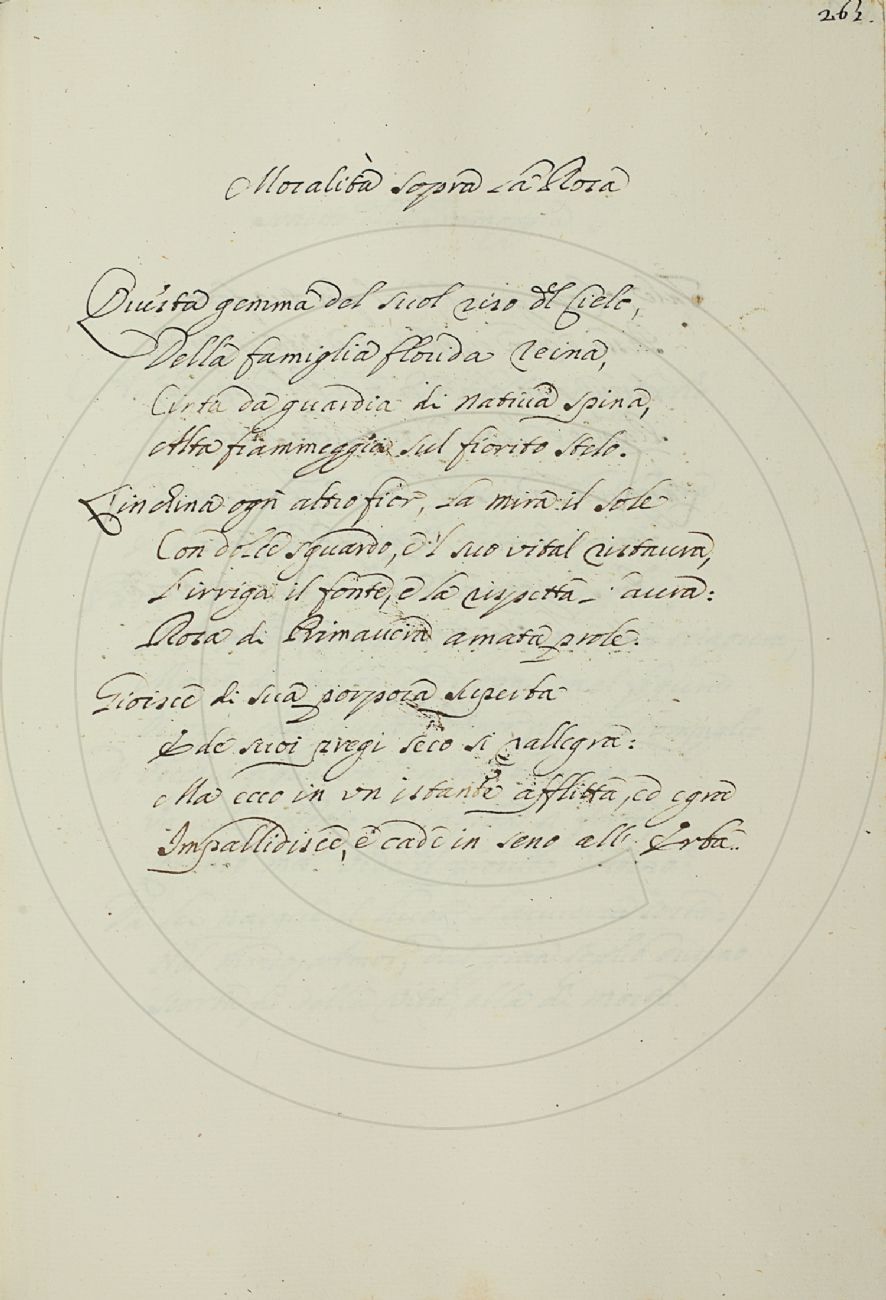 262.
Moralità sopra la Rosa
Questa gemma del suol riso del Cielo,
Della famiglia florida reina,
Cinta da guardia di nativa spina,
Alta fiammeggia sul fiorito stelo.
L'inchina ogn' altro fior, la mira il Sole
Con dolce sguardo, e 'l suo vital ristaura,
L'irriga il fonte, e la rispetta l'aura:
Rosa di Primavera amata prole.
Gioisce di sua porpora superba
E de suoi pregi seco si rallegra:
Ma ecco in vn istante afflitta, ed egra
Impallidisce, e cade in seno all' Erba.